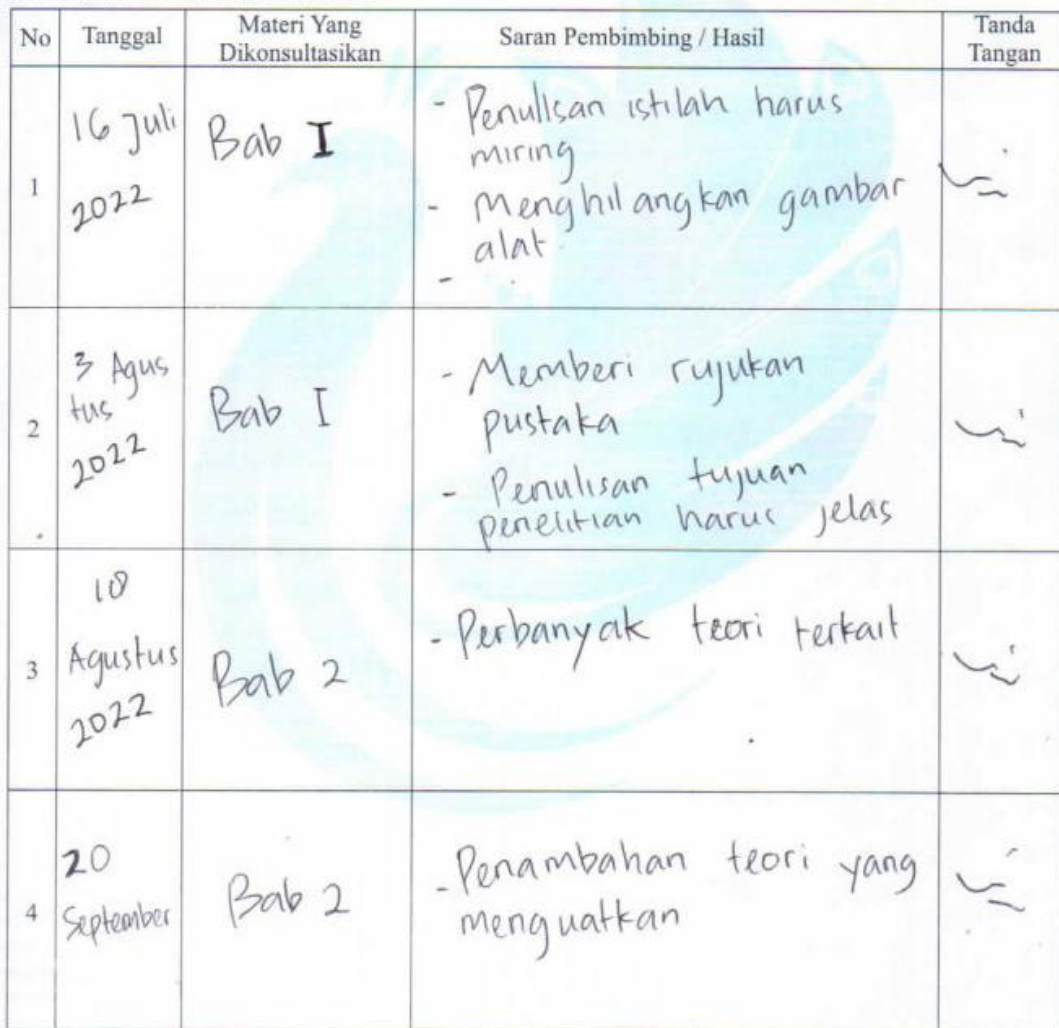 No Tanggal Materi Yang Dikonsultasikan Saran Pembimbing / Hasil Tanda Tangan
1
16 Juli
2022
Bab I
- Penulisan istilah harus
miring
- Menghilangkan gambar
alat
-
2
3 Agus
tus
2022
Bab I
- Memberi rujukan
pustaka
- Penulisan tujuan
penelitian harus jelas
3
Agustus
2022
Bab 2
- Perbanyak teori terkait
4
20
September
Bab 2
- Penambahan teori yang
menguatkan